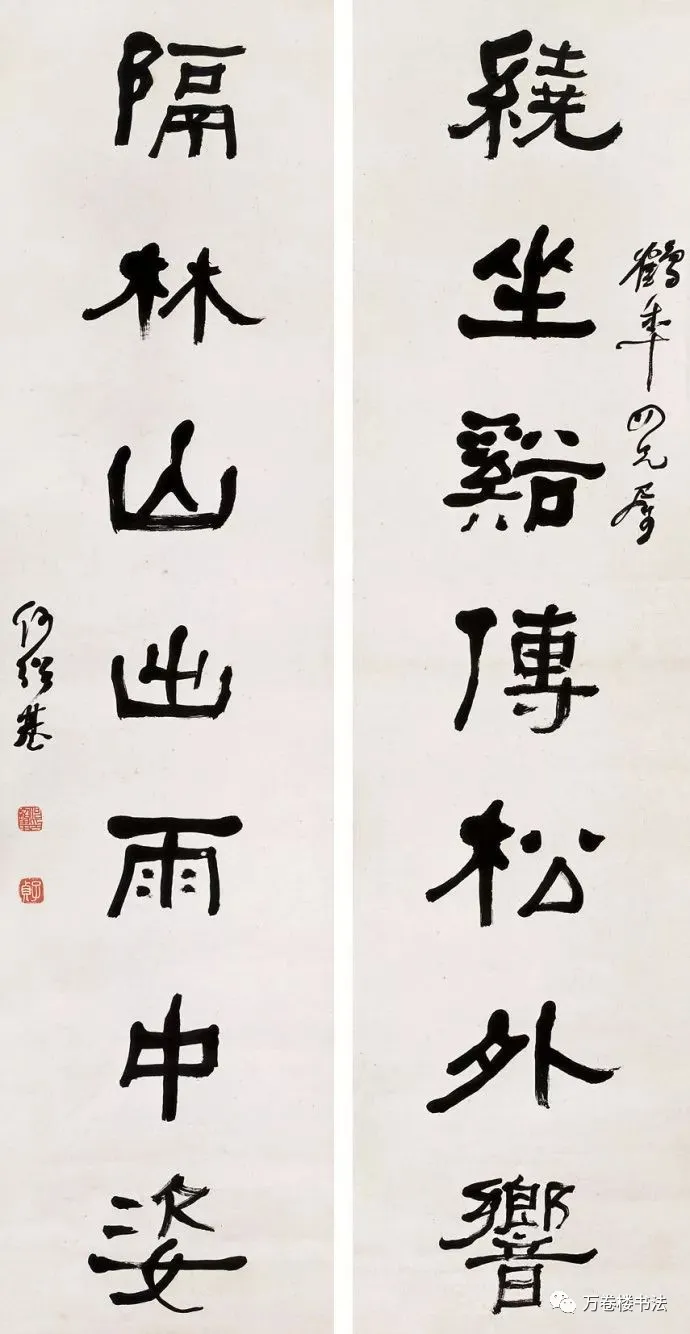 鶴年四兄屬
繞坐谿傳松外響
隔林山出雨中姿
何紹基
子貞
万卷楼书法